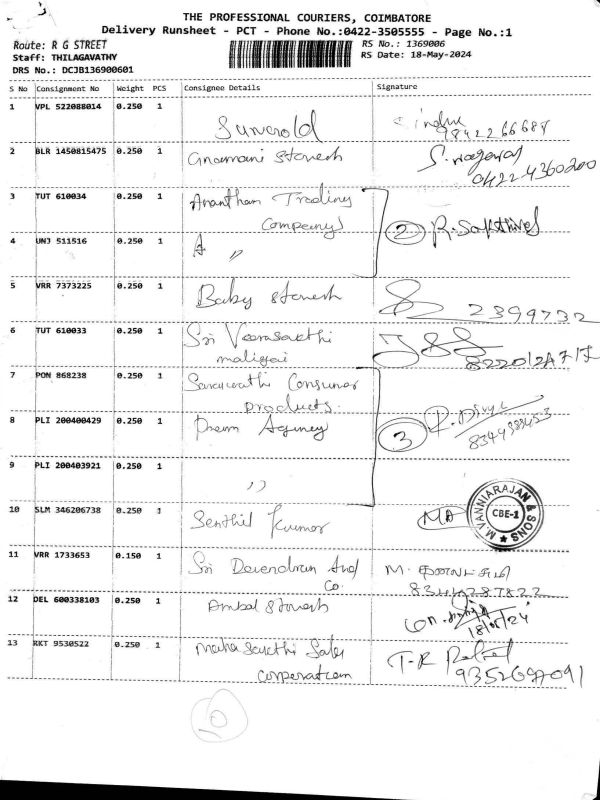 THE PROFESSIONAL COURIERS, COIMBATORE
Delivery Runsheet - PCT - Phone No.:0422-3505555 - Page No.:1
Route: R G STREET RS No.: 1369006
Staff: THILAGAVATHY RS Date: 18-May-2024
DRS No.: DCJB136900601
S No Consignment No Weight PCS Consignee Details Signature
1 VPL 522088014 0.250 1
2 BLR 1450815475 0.250 1 Gnanamani Stores
3 TUT 610034 0.250 1 Anantham Trading
Company
2 R. Sakthivel
4 UNJ 511516 0.250 1 A "
5 VRR 7373225 0.250 1 Baby stores 2399732
6 TUT 610033 0.250 1 Sri Veerasakthi
maligai
7 PON 868238 0.250 1 Saraswathi Consumer
products.
8 PLI 200400429 0.250 1 Prem Agency 3 R. Divya
9 PLI 200403921 0.250 1 ,,
10 SLM 346206738 0.250 1 Senthil Kumar
M.VANNIARAJAN & SONS ★
CBE-1
11 VRR 1733653 0.150 1 Sri Devendran And
Co
12 DEL 600338103 0.250 1 Ambal Stores
13 RKT 9530522 0.250 1 Mahasakthi Sales
corporation